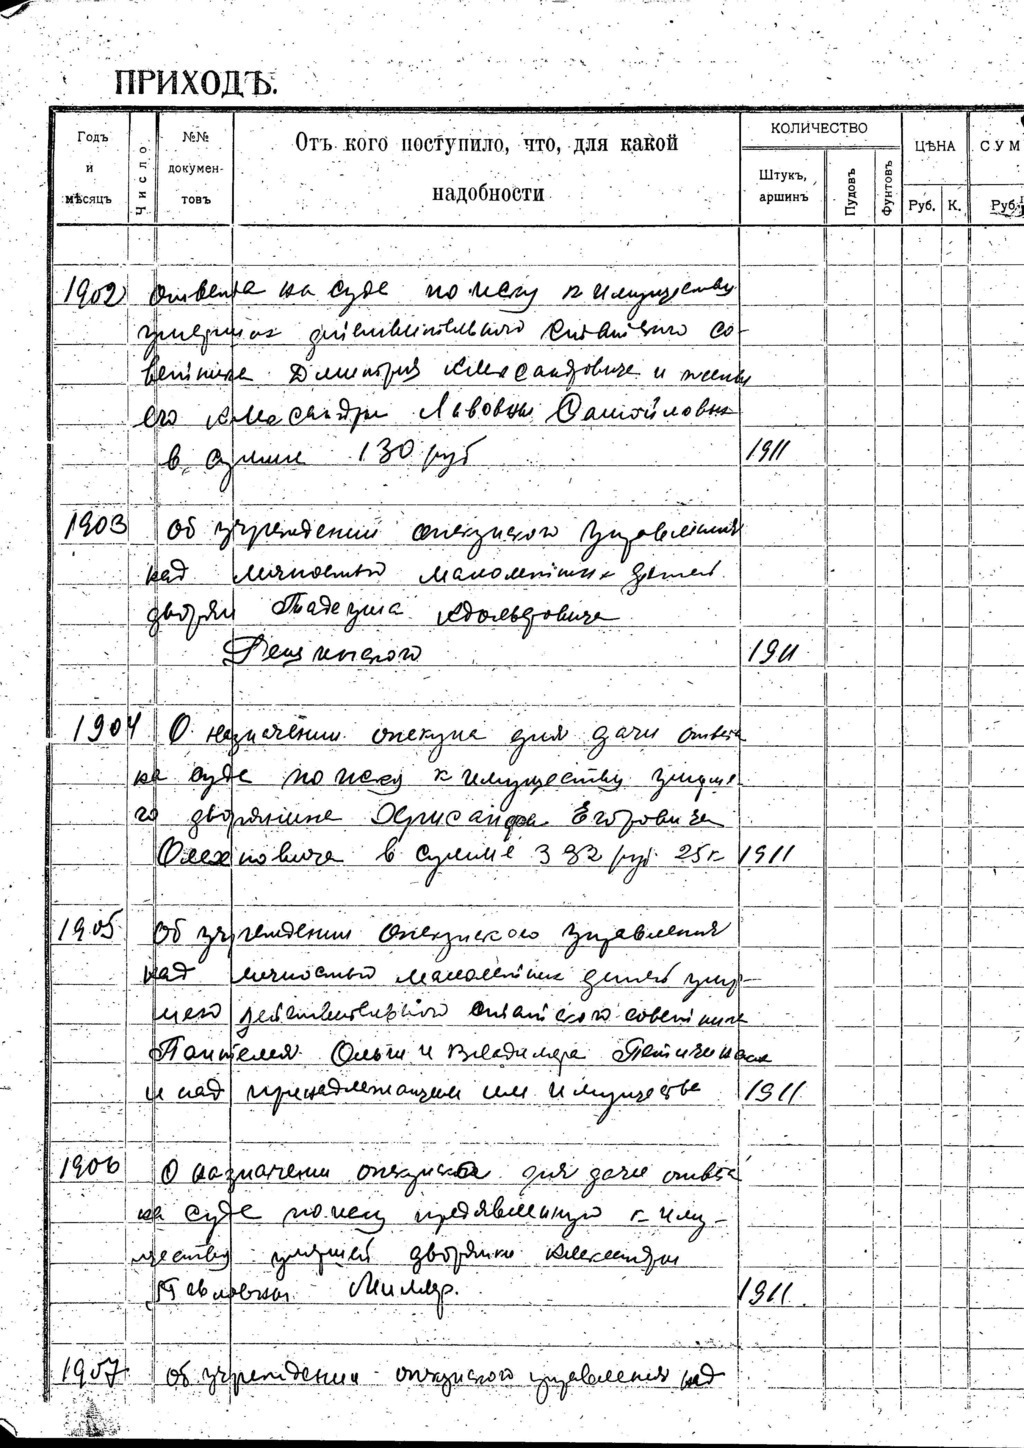 ПРИХОДЪ.
Годъ и мѣсяцъ
Число
№№ документовъ
Отъ кого поступило, что, для какой надобности
КОЛИЧЕСТВО
Штукъ, аршинъ
Пудовъ
Фунтовъ
ЦѢНА
Руб. К.
СУМ
Руб.
1902 ответа на суде по иску к имуществу
умерших действительного статского со-
ветника Дмитрия Александровича и жены
его Александры Львовны Самойловых
в сумме 130 руб 1911
1903 Об учреждении опекунского управления
над личностью малолетних детей
дворян Тадеуша Адольфовича
1911
1904 О назначении опекуна для дачи ответа
на суде по иску к имуществу умерше
го дворянина Хрисанфа Егоровича
Олехновича в сумме 392 руб. 25 к 1911
1905 Об учреждении опекунского управления
над личностью малолетних детей умер-
шего действительного статского советника
Пантелея Ольги и Владимира
и над принадлежащем им имуществе 1911
1906 О назначении опекунства для дачи ответа
на суде по иску предявленную к иму-
ществу умершей дворянки Александры
Павловны Миллер. 1911
1907 Об учреждении опекунского управления над